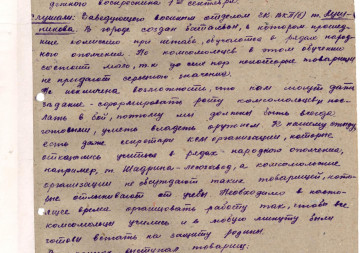 данного воскресника 1го сентября.
Слушали: Заведующего военным отделом ГК ВКП(б) т.
В городе создан батальон, в котором
комиссию при штабе, обучаются в рядах народ-
ного ополчения. Но комсомольцев в этом обучении
состоит мало, т.к. до сих пор некоторые товарищи
не предают серьезного значения.
Не исключена возможность, что нам могут дать
задание - сформировать роту комсомольцев, пос-
лать в бой, поэтому мы должны быть всегда
готовыми, уметь владеть оружием. К нашему стыду,
есть даже секретари ком. организации, которые
отказались учиться в рядах народного ополчения,
например, т. Шадрина - лензавод, а комсомольские
организации не обсуждают таких товарищей, кото-
рые отлынивают от учебы. Необходимо в насто-
ящее время организовать работу так, чтобы все
комсомольцы учились и в любую минуту были
готовы встать на защиту родины.
выступал товарищ: